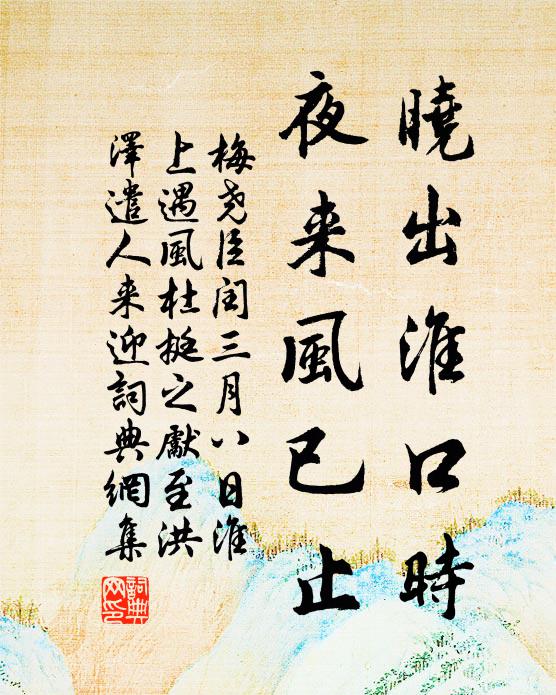 曉出淮口時
夜来風已止
梅堯臣閏三月八日淮
上遇風杜挺之獻至洪
澤遣人来迎詞典網集
詞典
网印